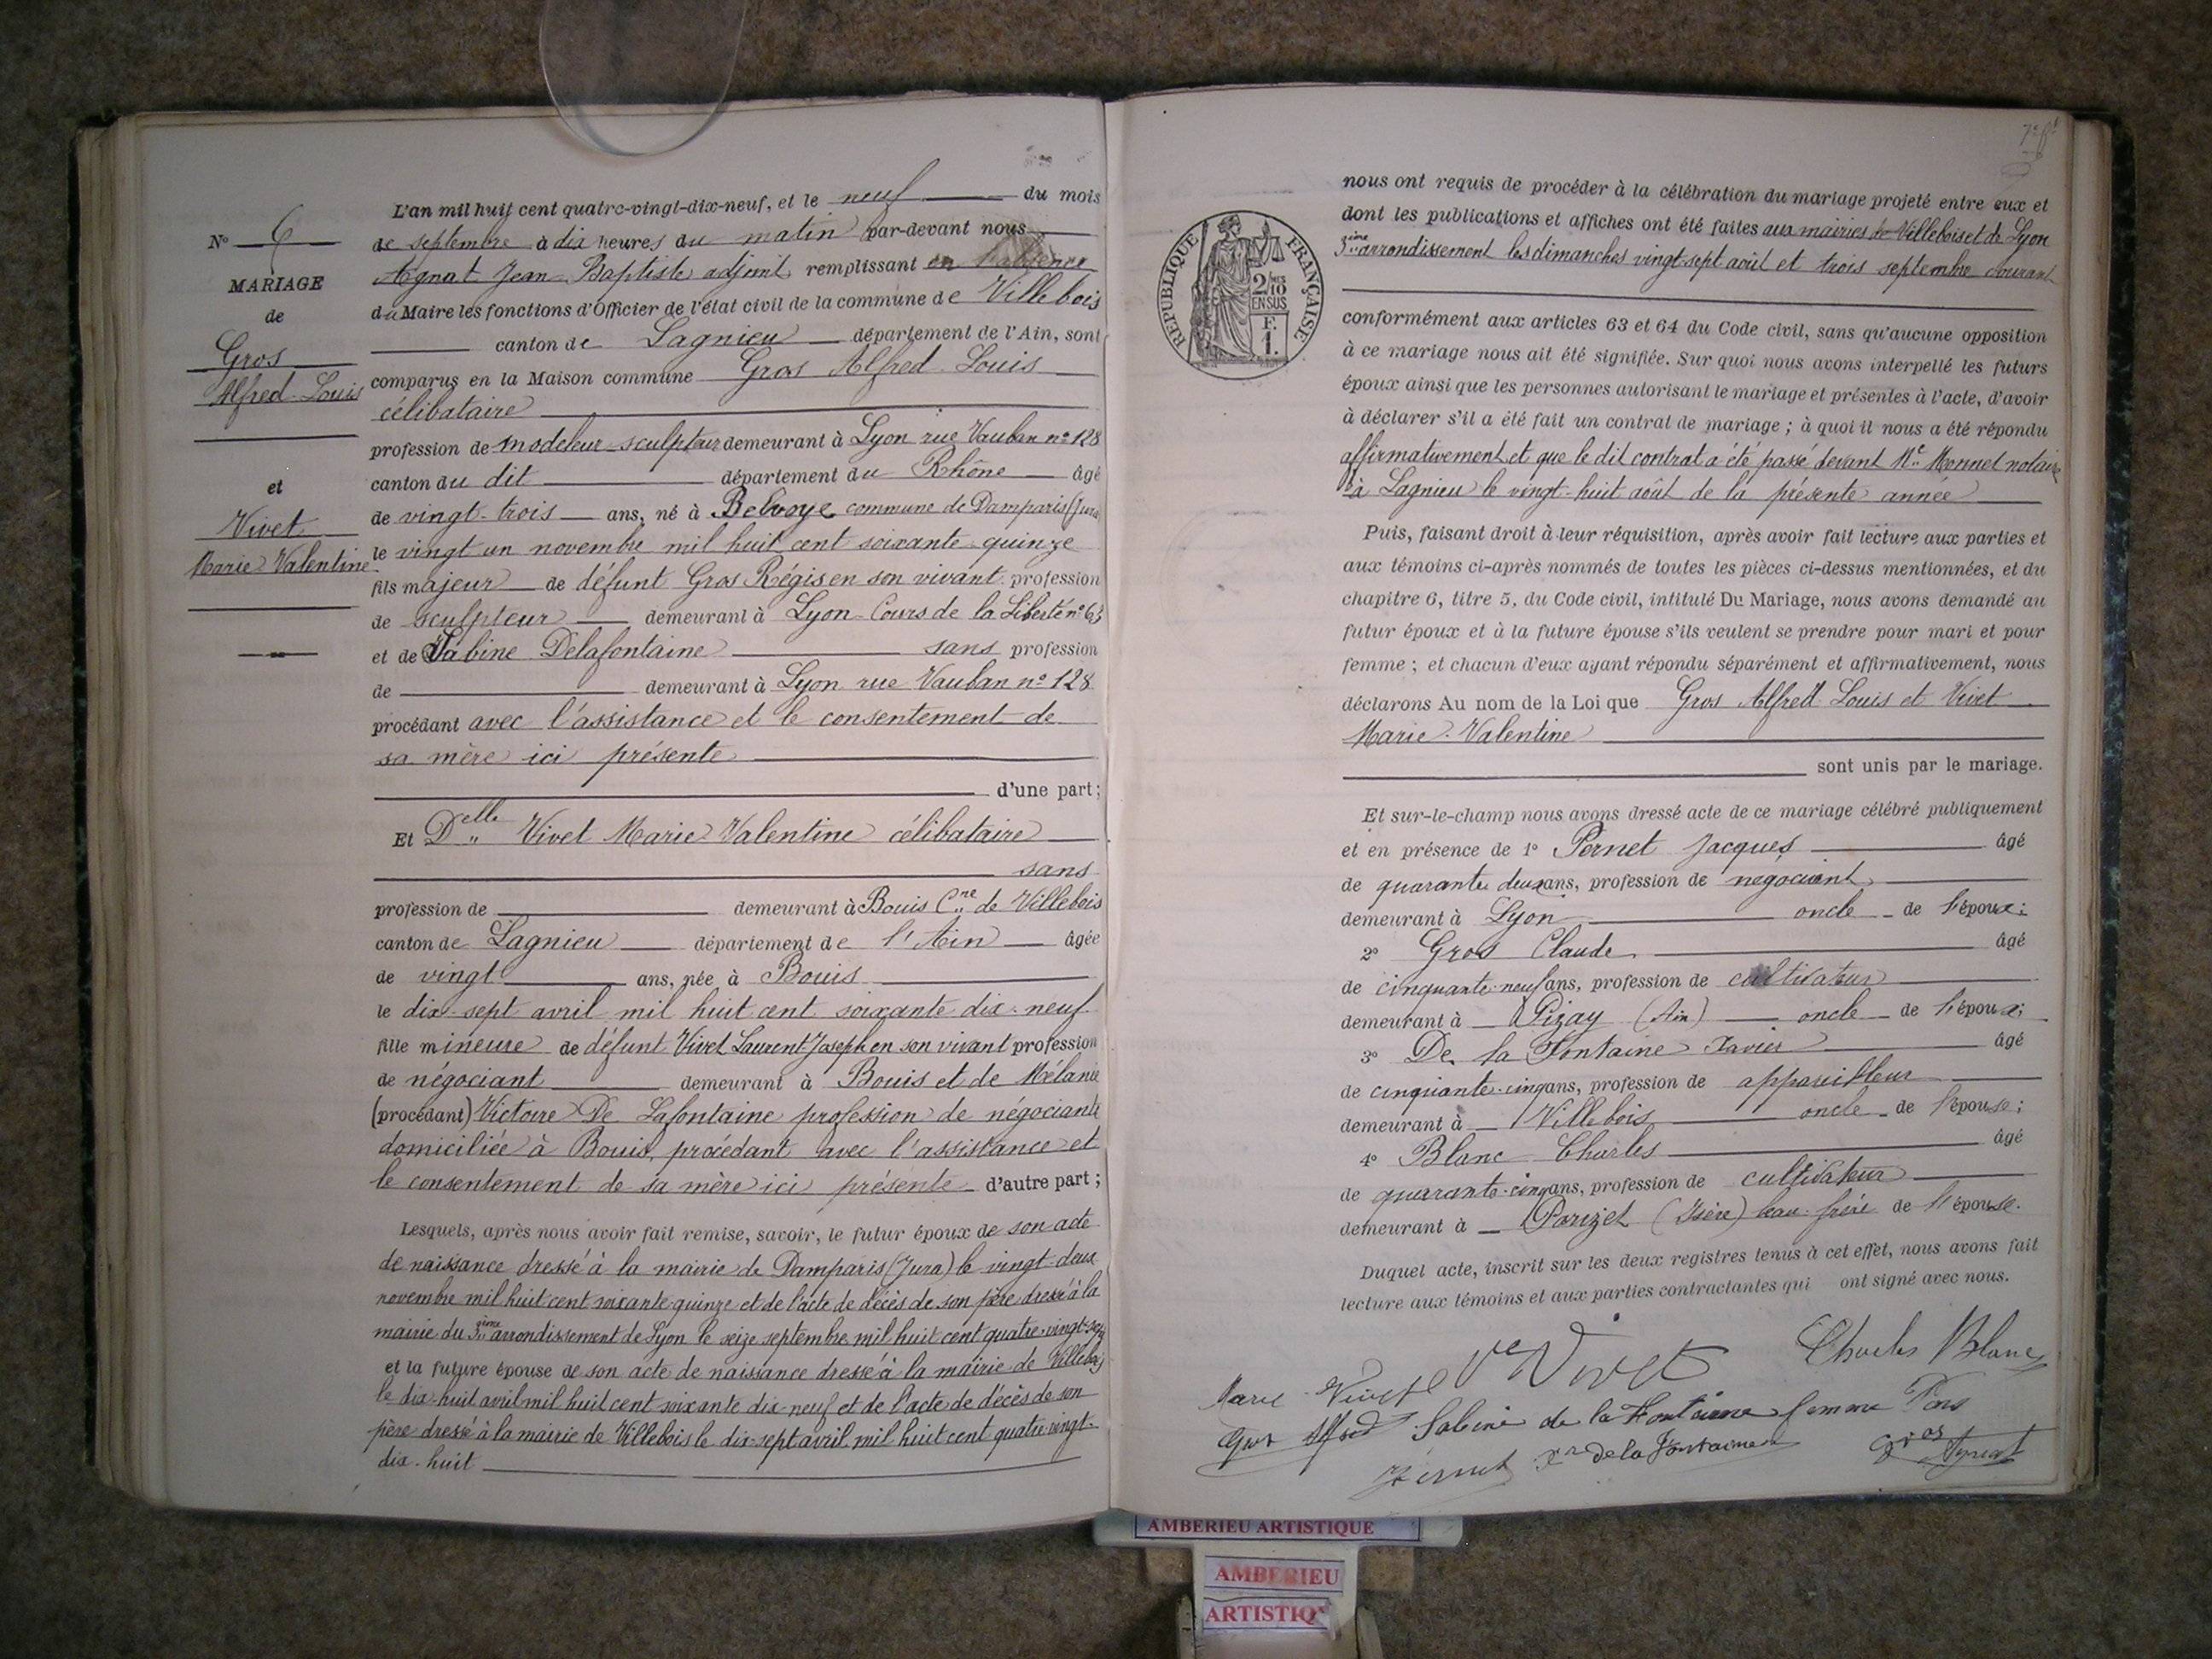 N° 6
MARIAGE
de
Gros
Alfred Louis
et
Vivet
Marie Valentine
L'an mil huit cent quatre-vingt-dix-neuf, et le neuf du mois
de septembre à dix heures du matin par-devant nous
Agnat Jean-Baptiste adjoint remplissant en l'absence
du Maire les fonctions d'Officier de l'état civil de la commune de Villebois
canton de Lagnieu département de l'Ain, sont
comparus en la Maison commune Gros Alfred Louis
célibataire
profession de modeleur-sculpteur demeurant à Lyon rue Vauban n° 128
canton du dit département du Rhône âgé
de vingt-trois ans, né à Belvoye commune de Damparis (Jura
le vingt un novembre mil huit cent soixante-quinze
fils majeur de défunt Gros Régis en son vivant profession
de sculpteur demeurant à Lyon Cours de la Liberté n° 63
et de Sabine Delafontaine sans profession
de demeurant à Lyon rue Vauban n° 128
procédant avec l'assistance et le consentement de
sa mère ici présente
d'une part;
Et Delle Vivet Marie Valentine célibataire
sans
profession de demeurant à Bouis Cne de Villebois
canton de Lagnieu département de l'Ain âgée
de vingt ans, née à Bouis
le dix-sept avril mil huit cent soixante dix-neuf
fille mineure de défunt Vivet Laurent Joseph en son vivant profession
de négociant demeurant à Bouis et de Mélanie
(procédant) Victoire De Lafontaine profession de négociante
domiciliée à Bouis, procédant avec l'assistance et
le consentement de sa mère ici présente d'autre part;
Lesquels, après nous avoir fait remise, savoir, le futur époux de son acte
de naissance dressé à la mairie de Damparis (Jura) le vingt-deux
novembre mil huit cent soixante quinze et de l'acte de décès de son père dressé à la
mairie du 3ième arrondissement de Lyon le seize septembre mil huit cent quatre-vingt-sept
et la future épouse de son acte de naissance dressé à la mairie de Villebois
le dix-huit avril mil huit cent soixante dix-neuf et de l'acte de décès de son
père dressé à la mairie de Villebois le dix-sept avril mil huit cent quatre-vingt-
dix-huit
RÉPUBLIQUE FRANÇAISE
2/10
EN SUS
F.
1.
nous ont requis de procéder à la célébration du mariage projeté entre eux et
dont les publications et affiches ont été faites aux mairies de Villebois et de Lyon
3ième arrondissement les dimanches vingt-sept août et trois septembre courant
conformément aux articles 63 et 64 du Code civil, sans qu'aucune opposition
à ce mariage nous ait été signifiée. Sur quoi nous avons interpellé les futurs
époux ainsi que les personnes autorisant le mariage et présentes à l'acte, d'avoir
à déclarer s'il a été fait un contrat de mariage; à quoi il nous a été répondu
affirmativement et que le dit contrat a été passé devant Me Monnet notaire
à Lagnieu le vingt-huit août de la présente année
Puis, faisant droit à leur réquisition, après avoir fait lecture aux parties et
aux témoins ci-après nommés de toutes les pièces ci-dessus mentionnées, et du
chapitre 6, titre 5, du Code civil, intitulé Du Mariage, nous avons demandé au
futur époux et à la future épouse s'ils veulent se prendre pour mari et pour
femme; et chacun d'eux ayant répondu séparément et affirmativement, nous
déclarons Au nom de la Loi que Gros Alfred Louis et Vivet
Marie-Valentine
sont unis par le mariage.
Et sur-le-champ nous avons dressé acte de ce mariage célébré publiquement
et en présence de 1° Pernet Jacques âgé
de quarante deux ans, profession de négociant
demeurant à Lyon oncle de l'époux;
2° Gros Claude âgé
de cinquante-neuf ans, profession de cultivateur
demeurant à Pizay (Ain) oncle de l'époux;
3° De la Fontaine Xavier âgé
de cinquante-cinq ans, profession de appareilleur
demeurant à Villebois oncle de l'épouse;
4° Blanc Charles âgé
de quarante-cinq ans, profession de cultivateur
demeurant à Parizet (Isère) beau-frère de l'épouse.
Duquel acte, inscrit sur les deux registres tenus à cet effet, nous avons fait
lecture aux témoins et aux parties contractantes qui ont signé avec nous.
Ve Vivet Charles Blanc
Marie Vivet
Gros Alfred Sabine de la Fontaine femme Gros
Pernet Xer de la Fontaine Gros Agnat
AMBERIEU ARTISTIQUE
AMBERIEU
ARTISTIQ